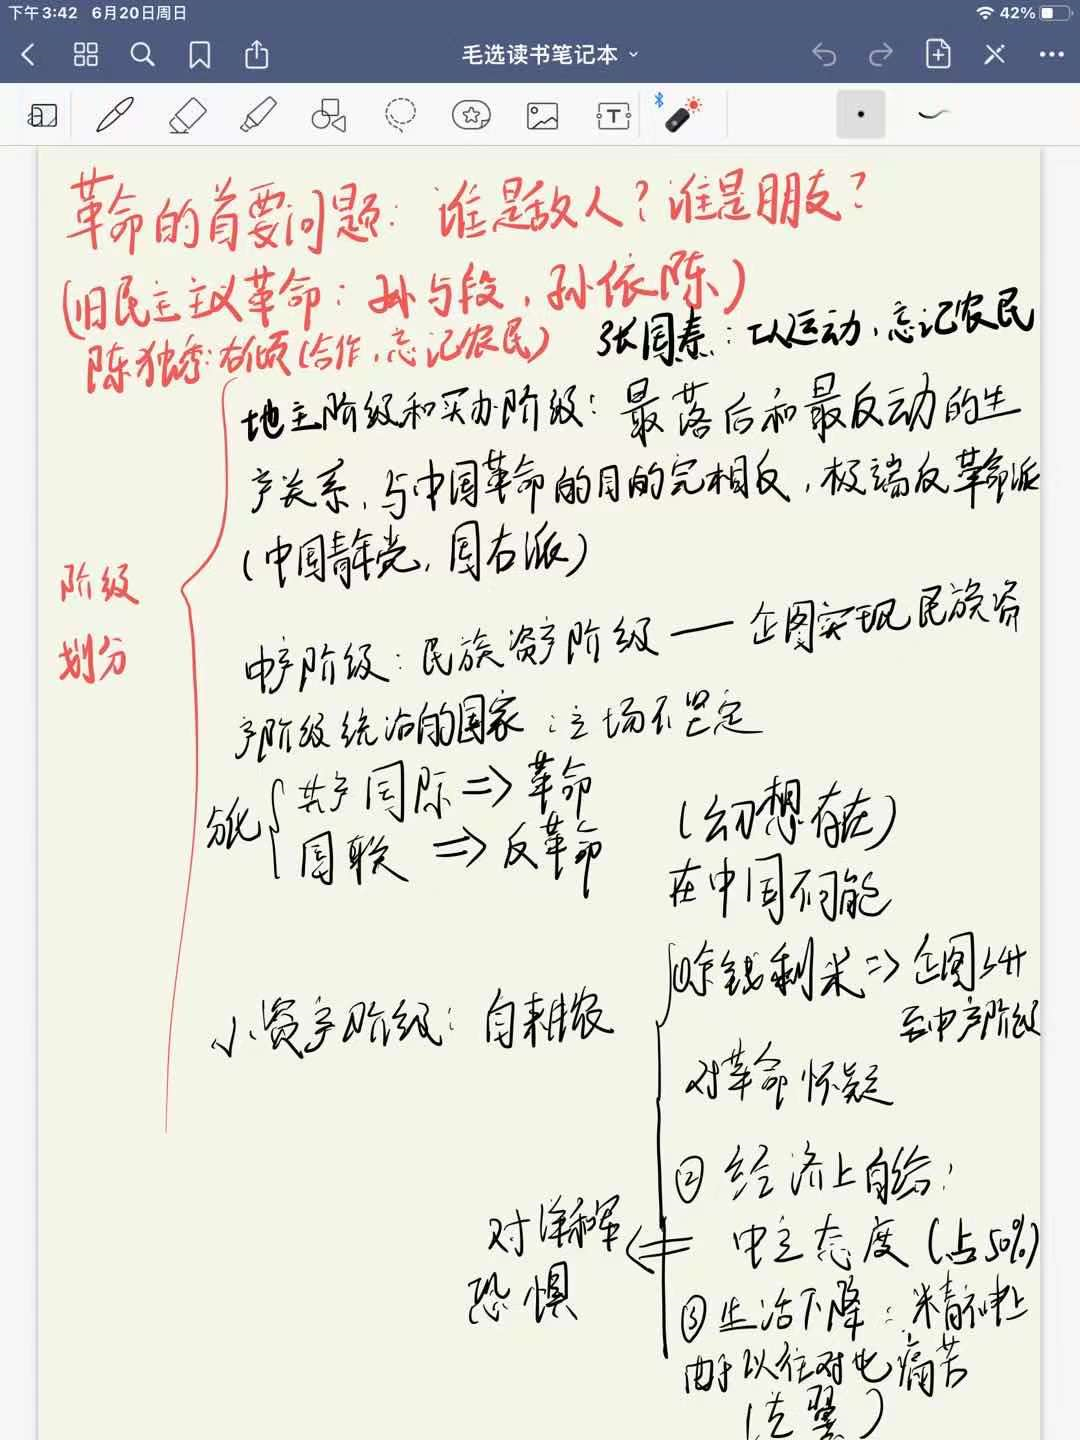 下午3:42 6月20日周日
42%
毛选读书笔记本
革命的首要问题：谁是敌人？谁是朋友？
(旧民主主义革命：孙与段，孙依陈)
陈独秀：右倾(合作，忘记农民)
张国焘：工人运动，忘记农民
阶级
划分
地主阶级和买办阶级：最落后和最反动的生
产关系，与中国革命的目的完相反，极端反革命派
(中国青年党，国右派)
中产阶级：民族资产阶级——企图实现民族资
产阶级统治的国家：立场不坚定
分化
共产国际=>革命
国联=>反革命
(幻想存在)
在中国不可能
小资产阶级：自耕农
①余钱剩米=>企图升
至中产阶级
对革命怀疑
②经济上自给：
中立态度(占50%)
对洋和军
恐惧
③生活下降：精神上
由于以往对比痛苦
(左翼)